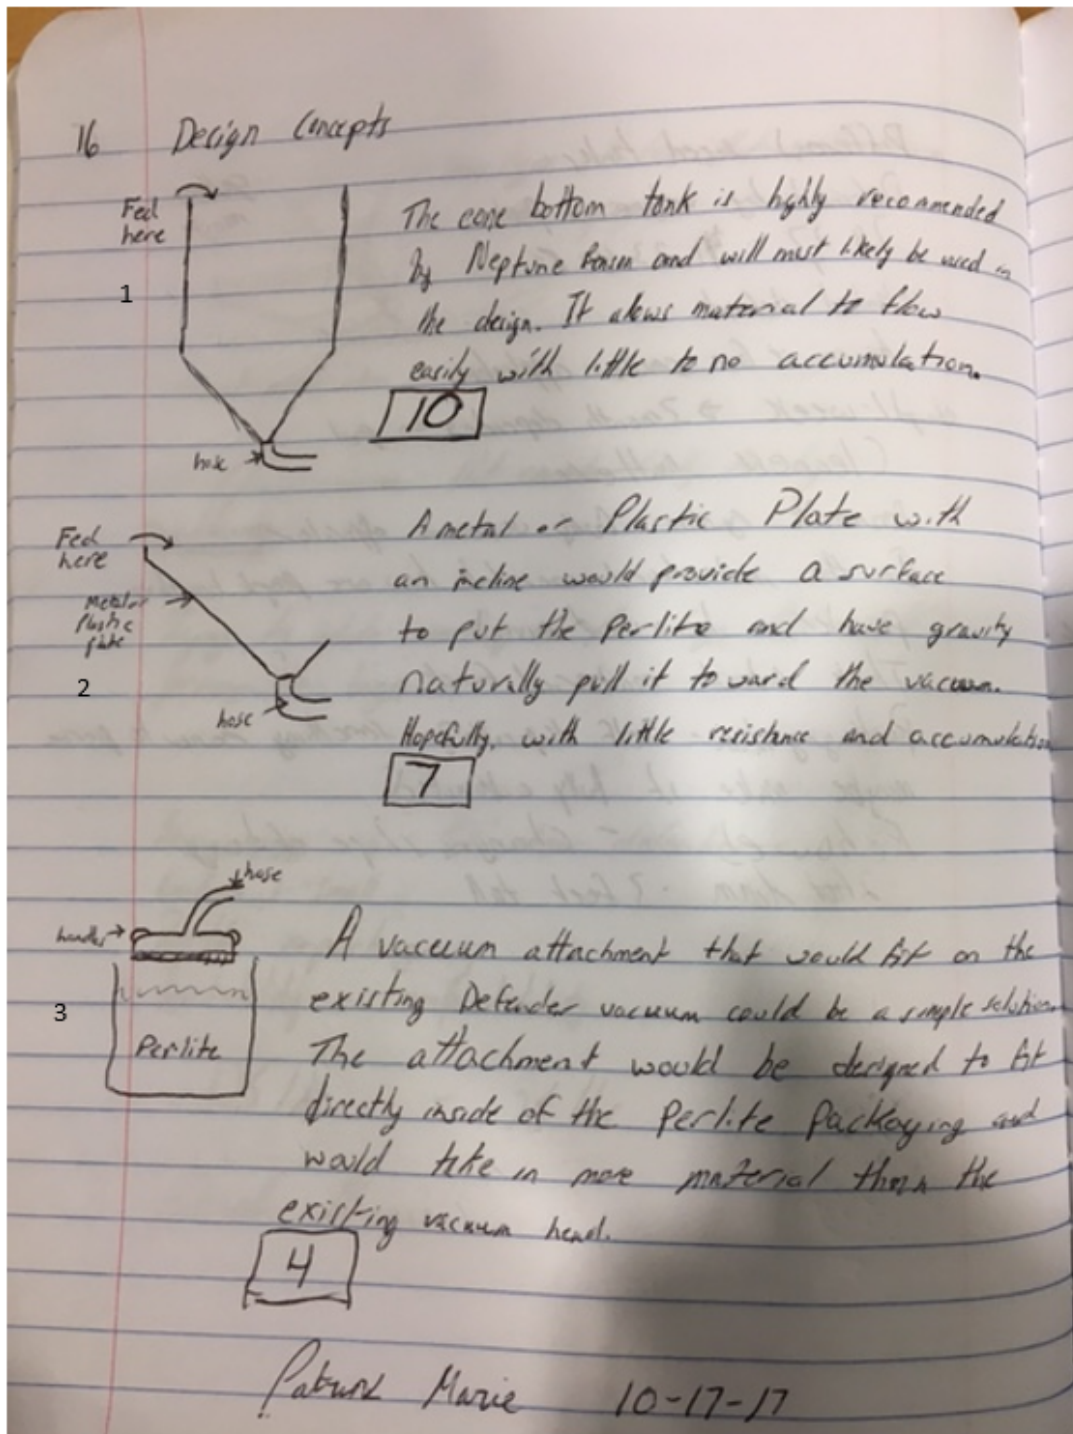 16 Design Concepts
Fed
here
1
hose
The cone bottom tank is highly recommended
by Neptune and will most likely be used in
the design. It alows material to flow
easily with little to no accumulation.
10
Fed
here
Metal or
plastic
plate
2
hose
A metal or Plastic Plate with
an incline would provide a surface
to put the Perlite and have gravity
naturally pull it toward the vacuum.
Hopefully, with little resistance and accumulation
7
hose
handles
3
Perlite
A vacuum attachment that would fit on the
existing Defender vacuum could be a simple solution.
The attachment would be designed to fit
directly inside of the Perlite Packaging and
would take in more material than the
existing vacuum head.
4
Patrick Marie 10-17-17